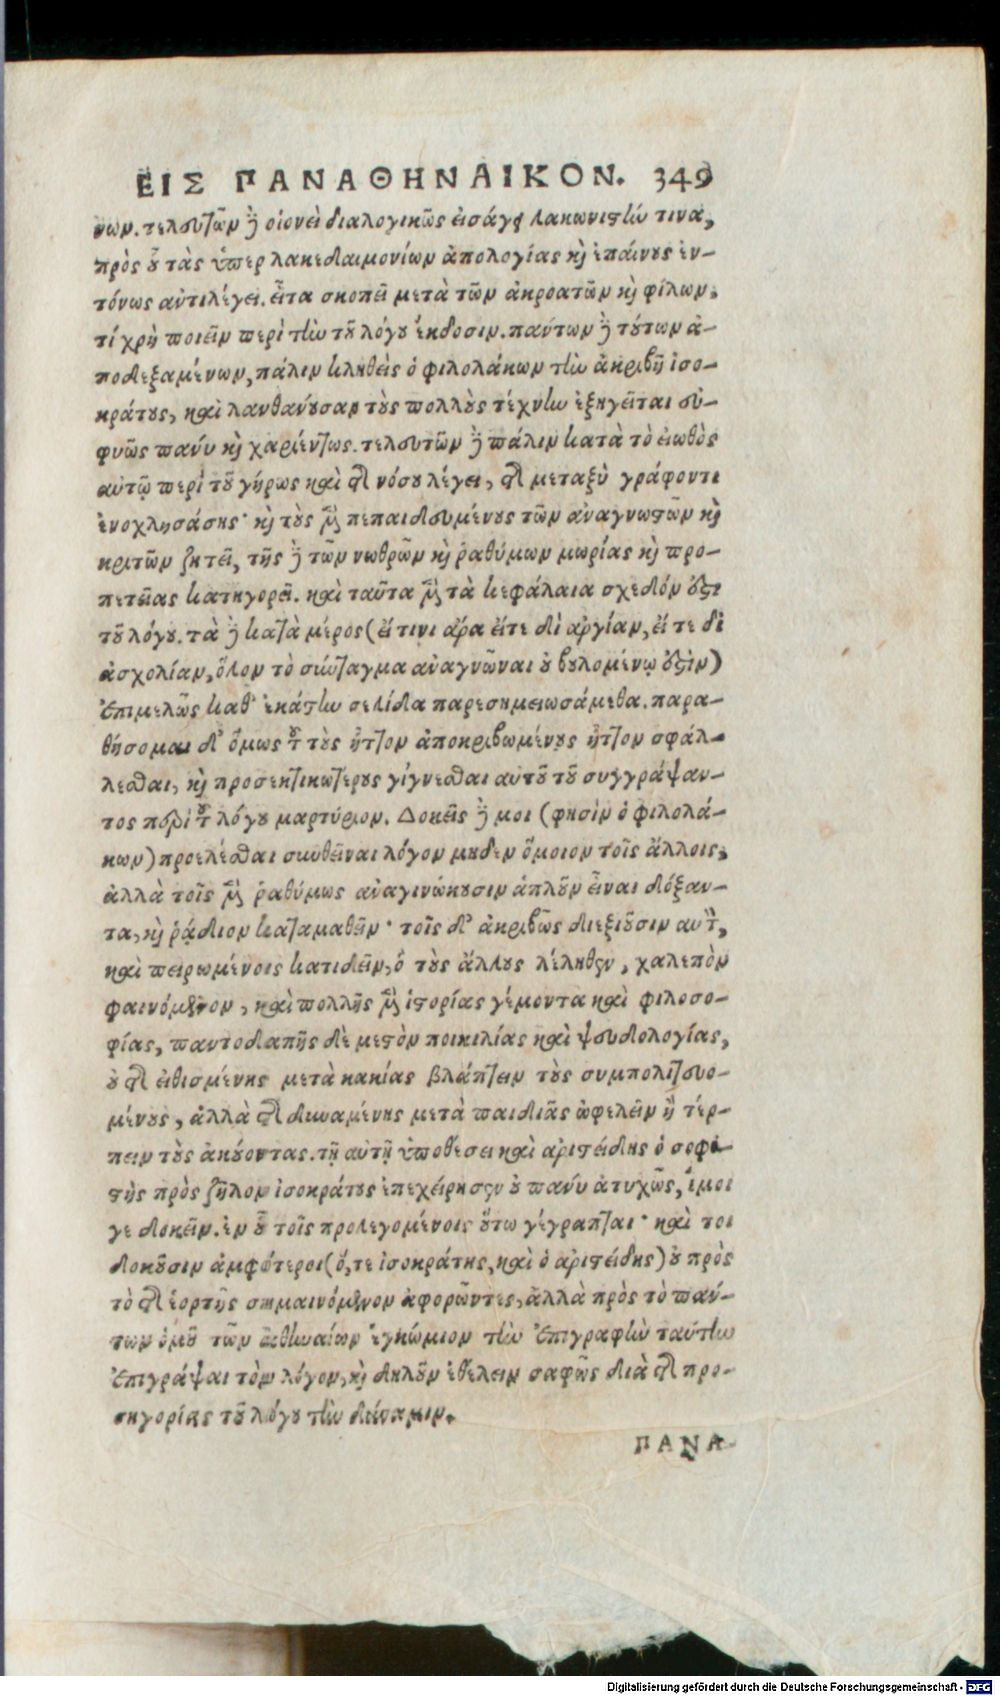 ΕΙΣ ΠΑΝΑΘΗΝΑΙΚΟΝ. 349
νων. τελευτῶν δὲ οἱονεὶ διαλογικῶς εἰσάγει λακωνιστήν τινα,
πρὸς ὃν τὰς ὑπὲρ λακεδαιμονίων ἀπολογίας καὶ ἐπαίνους ἐν-
τόνως ἀντιλέγει. εἶτα σκοπεῖ μετὰ τῶν ἀκροατῶν καὶ φίλων,
τί χρὴ ποιεῖν περὶ τὴν τοῦ λόγου ἔκδοσιν. πάντων δὲ τούτων ἀ-
ποδεξαμένων, πάλιν κληθεὶς ὁ φιλολάκων τὴν ἀκριβῆ ἰσο-
κράτους, καὶ λανθάνουσαν τοὺς πολλοὺς τέχνην ἐξηγεῖται εὐ-
φυῶς πάνυ καὶ χαριέντως. τελευτῶν δὲ πάλιν κατὰ τὸ εἰωθὸς
αὐτῷ περὶ τοῦ γήρως καὶ τῆς νόσου λέγει, τῆς μεταξὺ γράφοντι
ἐνοχλησάσης· καὶ τοὺς μὲν πεπαιδευμένους τῶν ἀναγνωστῶν καὶ
κριτῶν ζητεῖ, τῆς δὲ τῶν νωθρῶν καὶ ῥαθύμων μωρίας καὶ προ-
πετείας κατηγορεῖ. καὶ ταῦτα μὲν τὰ κεφάλαια σχεδόν ἐστι
τοῦ λόγου. τὰ δὲ κατὰ μέρος (εἴ τινι ἄρα εἴτε δι ἀργίαν, εἴ τε δι
ἀσχολίαν, ὅλον τὸ σύνταγμα ἀναγνῶναι οὐ βουλομένῳ ἐστὶν)
ἐπιμελῶς καθ' ἑκάστην σελίδα παρεσημειωσάμεθα. παρα-
θήσομαι δ' ὅμως τοῦ τοὺς ἧττον ἀποκριβωμένους ἧττον σφάλ-
λεσθαι, καὶ προσεκτικωτέρους γίγνεσθαι αὐτοῦ τοῦ συγγράψαν-
τος περὶ τοῦ λόγου μαρτύριον. Δοκεῖς δέ μοι (φησὶν ὁ φιλολά-
κων) προελέσθαι συνθεῖναι λόγον μηδὲν ὅμοιον τοῖς ἄλλοις,
ἀλλὰ τοῖς μὲν ῥαθύμως ἀναγινώκουσιν ἁπλοῦν εἶναι δόξαν-
τα, καὶ ῥᾴδιον καταμαθεῖν· τοῖς δ' ἀκριβῶς διεξιοῦσιν αὐτὸν,
καὶ πειρωμένοις κατιδεῖν, ὃ τοὺς ἄλλους λέληθεν, χαλεπὸν
φαινόμενον, καὶ πολλῆς μὲν ἱστορίας γέμοντα καὶ φιλοσο-
φίας, παντοδαπῆς δὲ μεστὸν ποικιλίας καὶ ψευδολογίας,
οὐ τῆς εἰθισμένης μετὰ κακίας βλάπτειν τοὺς συμπολιτευο-
μένους, ἀλλὰ τῆς δυναμένης μετὰ παιδιᾶς ὠφελεῖν ἢ τέρ-
πειν τοὺς ἀκούοντας. τῇ αὐτῇ ὑποθέσει καὶ ἀριστείδης ὁ σοφι-
στὴς πρὸς ζῆλον ἰσοκράτους ἐπεχείρησεν οὐ πάνυ ἀτυχῶς, ἐμοι
γε δοκεῖν. ἐν οὖν τοῖς προλεγομένοις οὕτω γέγραπται· καὶ τοι
δοκοῦσιν ἀμφότεροι (ὅ, τε ἰσοκράτης, καὶ ὁ ἀριστείδης) οὐ πρὸς
τὸ τῆς ἑορτῆς σημαινόμενον ἀφορῶντες, ἀλλὰ πρὸς τὸ πάν-
των ὁμοῦ τῶν ἀθηναίων ἐγκώμιον τὴν ἐπιγραφὴν ταύτην
ἐπιγράψαι τὸν λόγον, καὶ δηλοῦν ἐθέλειν σαφῶς διὰ τῆς προ-
σηγορίας τοῦ λόγου τὴν δύναμιν.
ΠΑΝΑ-
Digitalisierung gefördert durch die Deutsche Forschungsgemeinschaft - DFG